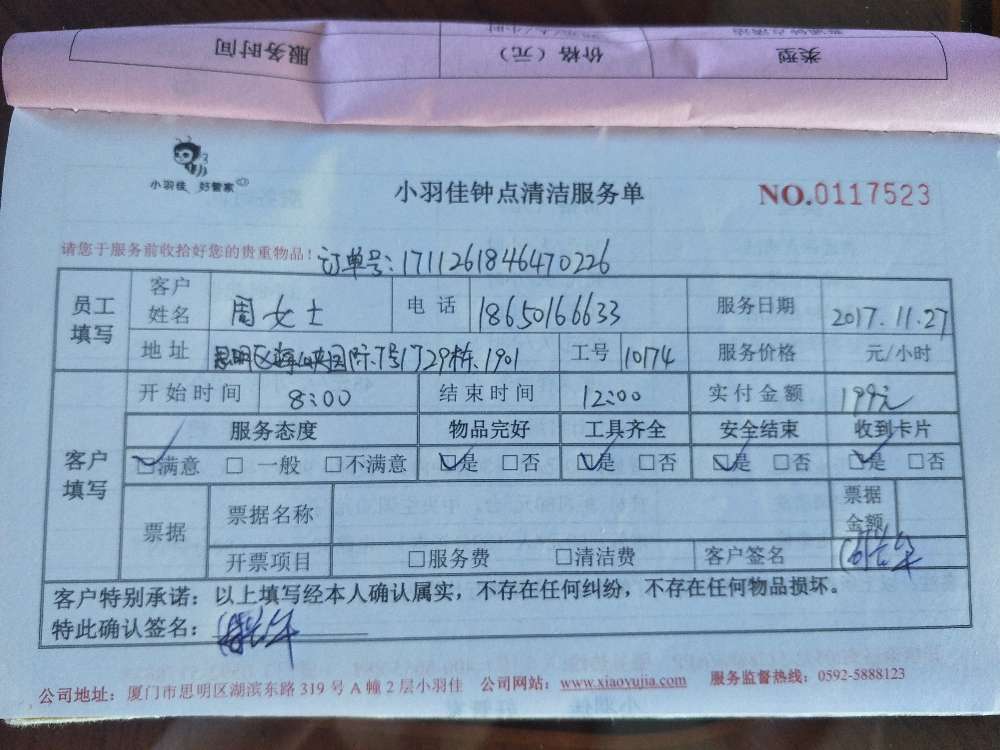 服务时间 价格（元） 类型
小羽佳 好管家
小羽佳钟点清洁服务单
NO.0117523
请您于服务前收拾好您的贵重物品！ 订单号：1711261846470226
员工填写 客户姓名 周女士 电话 18650166633 服务日期 2017.11.27
地址 思明区 国际 29栋.1901 工号 10174 服务价格 元/小时
客户填写 开始时间 8:00 结束时间 12:00 实付金额 199元
服务态度 物品完好 工具齐全 安全结束 收到卡片
☑满意 □一般 □不满意 ☑是 □否 ☑是 □否 ☑是 □否 ☑是 □否
票据 票据名称 票据金额
开票项目 □服务费 □清洁费 客户签名
客户特别承诺：以上填写经本人确认属实，不存在任何纠纷，不存在任何物品损坏。
特此确认签名：
公司地址：厦门市思明区湖滨东路 319 号 A 幢 2 层小羽佳 公司网站：www.xiaoyujia.com 服务监督热线：0592-5888123